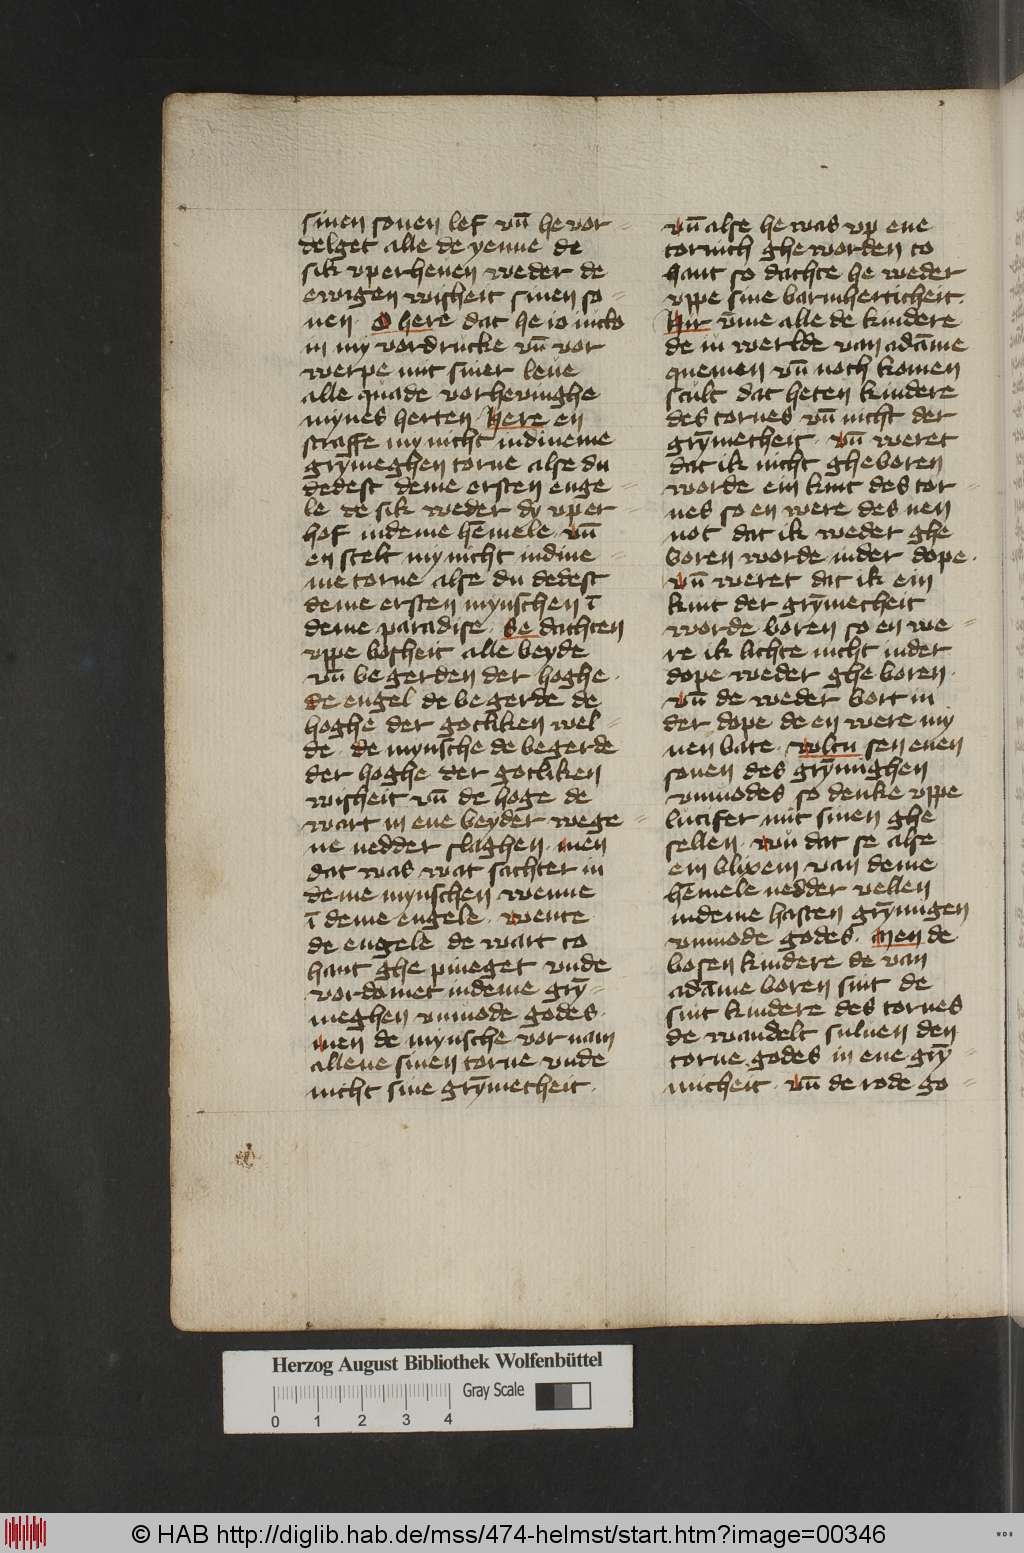 sinen sonen lef vn̄ he vor-
delget alle de yenne de
sik vperheuen weder de
ewigen wisheit sinen so-
nen. O here dat he io nicko
in my vordrucke vn̄ vor
werpe mit siner leue
alle quade vorheuinghe
mynes herten. Here en
straffe my nicht indineme
gry̅meghen torne alse du
dedest deme ersten enge-
le de sik weder dy vper-
hof indeme he̅mele. vn̄
en stelt my nicht indine-
me torne alse du dedest
deme ersten mynschen ī
deme paradise. Se dachten
vppe bosheit alle beyde
vn̄ begerden der hoghe.
de engel de begerde de
hoghe der gotliken wel-
de. de mynsche de begerde
der hoghe der gotliken
wisheit vn̄ de hoge de
wart in ene beyder wege-
ne nedder slaghen. men
dat was wat sachter in
deme mynschen wenne
ī deme engele. wente
de engele de wart to
hant ghe pineget vnde
vordomet indeme gry̅-
meghen vnmode godes.
men de mynsche vornam
allene sinen torne vnde
nicht sine gry̅metheit.
vn̄ alse he was vp ene
tornich ghe worden to
hant so dachte he weder
vppe sine barmherticheit.
Hir v̅me alle de kindere
de in werlde van ada̅me
quemen vn̄ noch komen
scult dat heten kindere
des tornes vn̄ nicht der
gry̅metheit. vn̄ weret
dat ik nicht gheboren
worde ein kint des tor-
nes so en were des nen
not dat ik weder ghe
boren worde inder dope.
vn̄ weret dat ik ein
kint der gry̅metheit
worde boren so en we-
re ik lichte nicht inder
dope weder ghe boren.
vn̄ de weder bort in
der dope de en were my
nen bate. woltu sen enen
sonen des gry̅nighen
vnmodes so denke vppe
lucifer mit sinen ghe
sellen. wu dat se alse
ein blixem van deme
he̅mele nedder vellen
indeme hasten gry̅nigen
vnmode godes. Men de
bosen kindere de van
ada̅me boren sint de
sint kindere des tornes
de wandelt suluen den
torne godes in ene gry̅-
micheit. vn̄ de rode go-
Herzog August Bibliothek Wolfenbüttel
Gray Scale
0 1 2 3 4
© HAB http://diglib.hab.de/mss/474-helmst/start.htm?image=00346